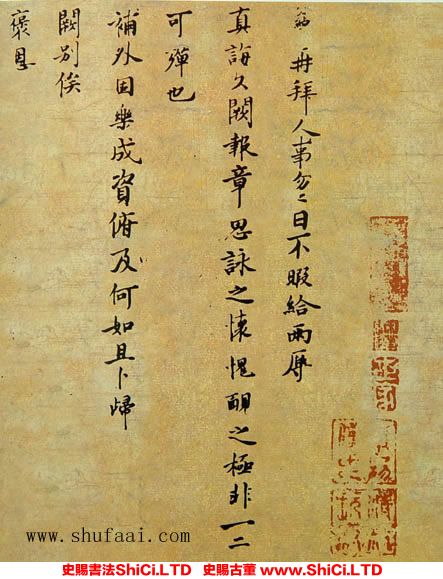 再拜人事匆々日不暇給兩辱
真誨久闕報章思詠之懷愧靦之極非一二
可殫也
補外固樂成資俯及何如且卜歸
闕別俟
褒恩
www.shufaai.com
史賜書法ShiCi.LTD 史賜古董 www.ShiCi.LTD